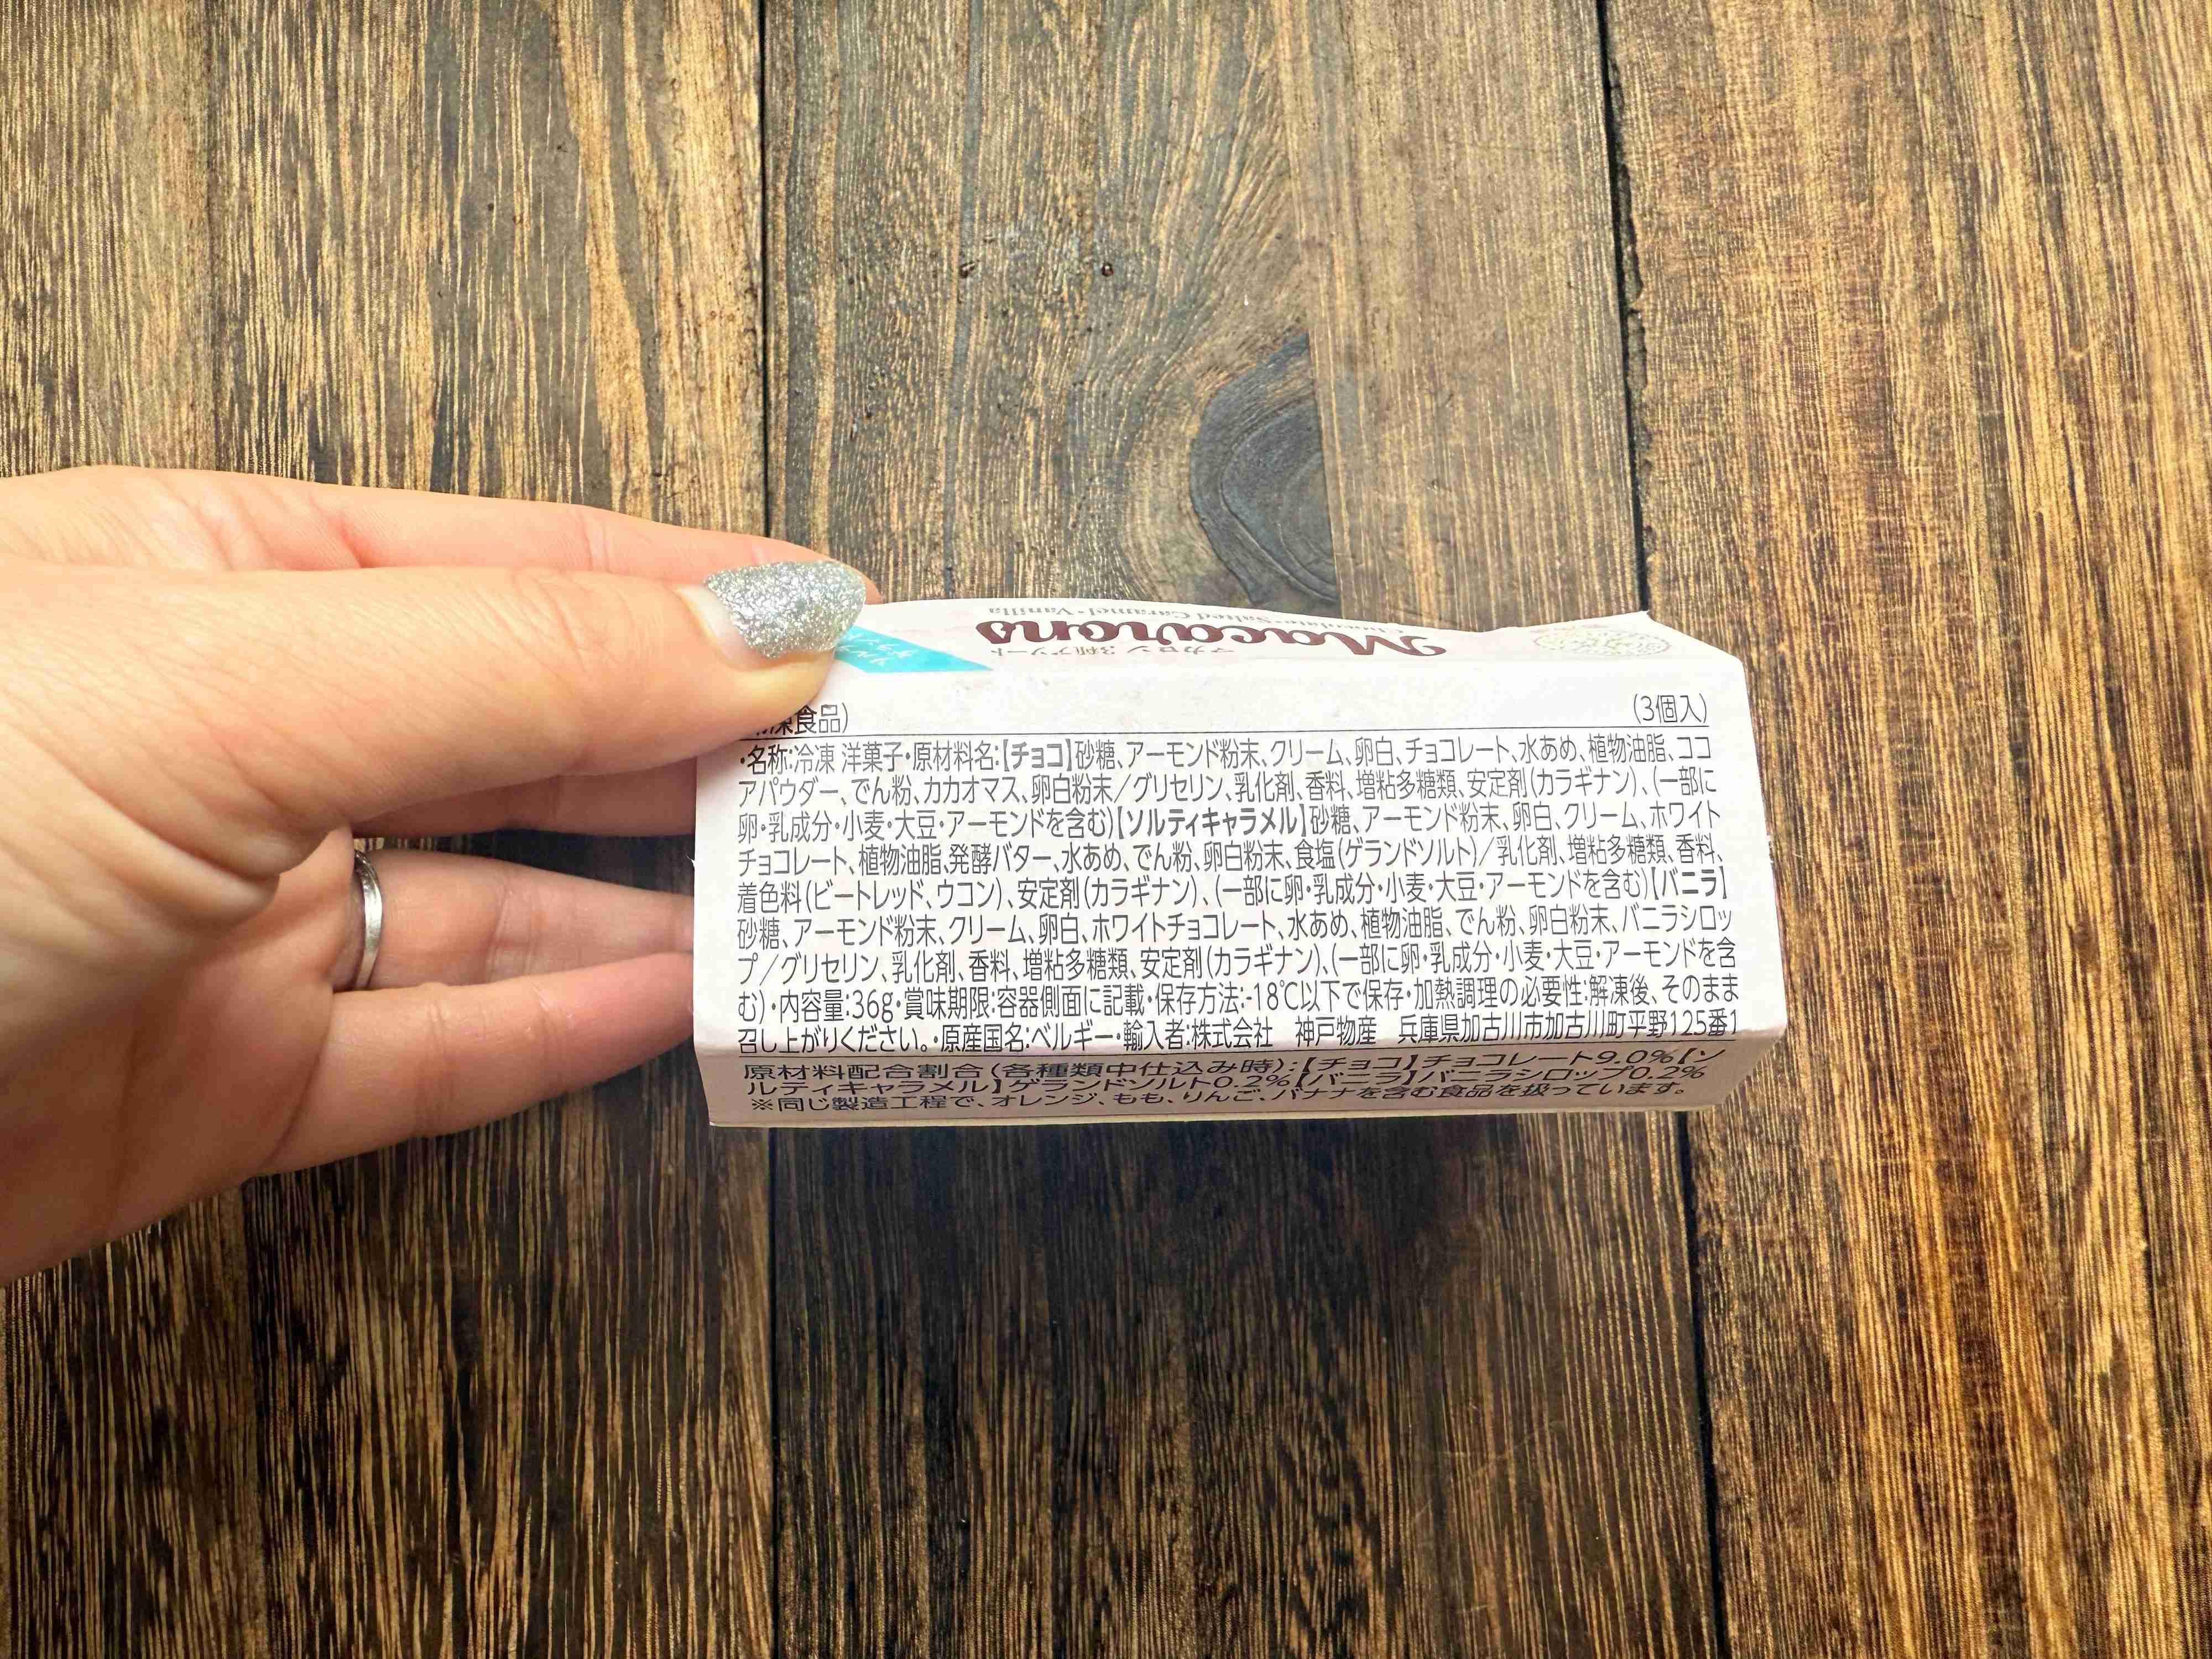 Chocolate・Salted Caramel・Vanilla
Macarons
マカロン 3種アソート
凍食品)
(3個入)
・名称:冷凍 洋菓子・原材料名:【チョコ】砂糖、アーモンド粉末、クリーム、卵白、チョコレート、水あめ、植物油脂、ココ
アパウダー、でん粉、カカオマス、卵白粉末／グリセリン、乳化剤、香料、増粘多糖類、安定剤(カラギナン)、(一部に
卵・乳成分・小麦・大豆・アーモンドを含む)【ソルティキャラメル】砂糖、アーモンド粉末、卵白、クリーム、ホワイト
チョコレート、植物油脂、発酵バター、水あめ、でん粉、卵白粉末、食塩(ゲランドソルト)／乳化剤、増粘多糖類、香料、
着色料(ビートレッド、ウコン)、安定剤(カラギナン)、(一部に卵・乳成分・小麦・大豆・アーモンドを含む)【バニラ】
砂糖、アーモンド粉末、クリーム、卵白、ホワイトチョコレート、水あめ、植物油脂、でん粉、卵白粉末、バニラシロッ
プ／グリセリン、乳化剤、香料、増粘多糖類、安定剤(カラギナン)、(一部に卵・乳成分・小麦・大豆・アーモンドを含
む)・内容量:36g・賞味期限:容器側面に記載・保存方法:-18℃以下で保存・加熱調理の必要性:解凍後、そのまま
召し上がりください。・原産国名:ベルギー・輸入者:株式会社 神戸物産 兵庫県加古川市加古川町平野125番1
原材料配合割合(各種類中仕込み時):【チョコ】チョコレート9.0%【ソ
ルティキャラメル】ゲランドソルト0.2%【バニラ】バニラシロップ0.2%
※同じ製造工程で、オレンジ、もも、りんご、バナナを含む食品を扱っています。